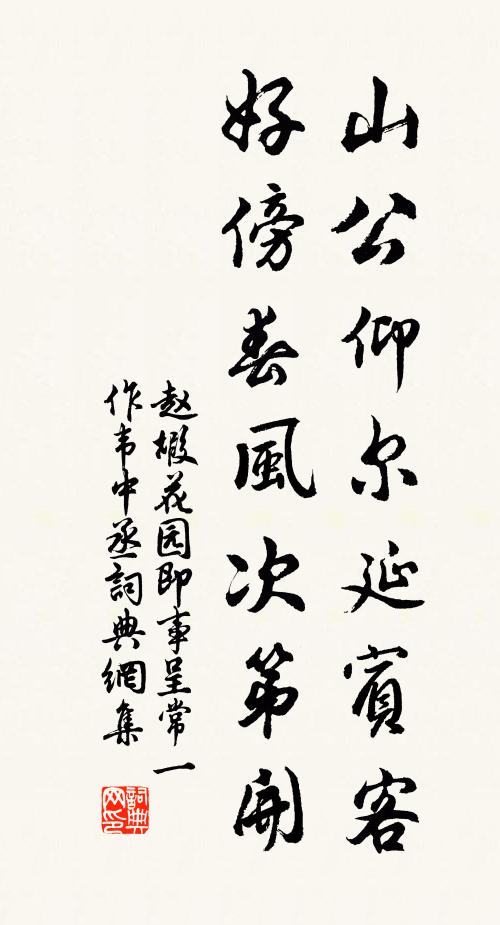 山公仰尔延賓客
好傍春風次第開
赵嘏花园即事呈常一
作韦中丞詞典網集
詞典
网印